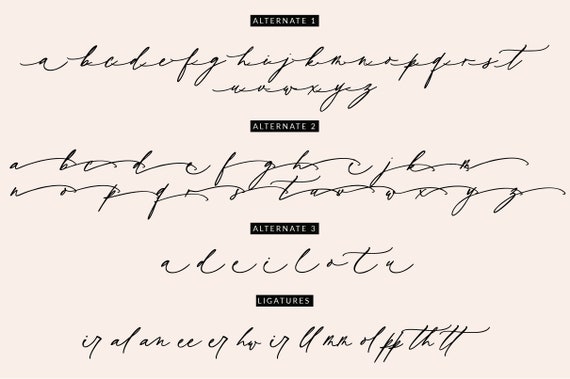 ALTERNATE 1
a b c d e f g h i j k m n o p q r s t
u v w x y z
ALTERNATE 2
a b c d e f g h i j k m
n o p q r s t u v w x y z
ALTERNATE 3
a d e i l o t u
LIGATURES
ir al an ee er hw ir ll mm ol pp th tt